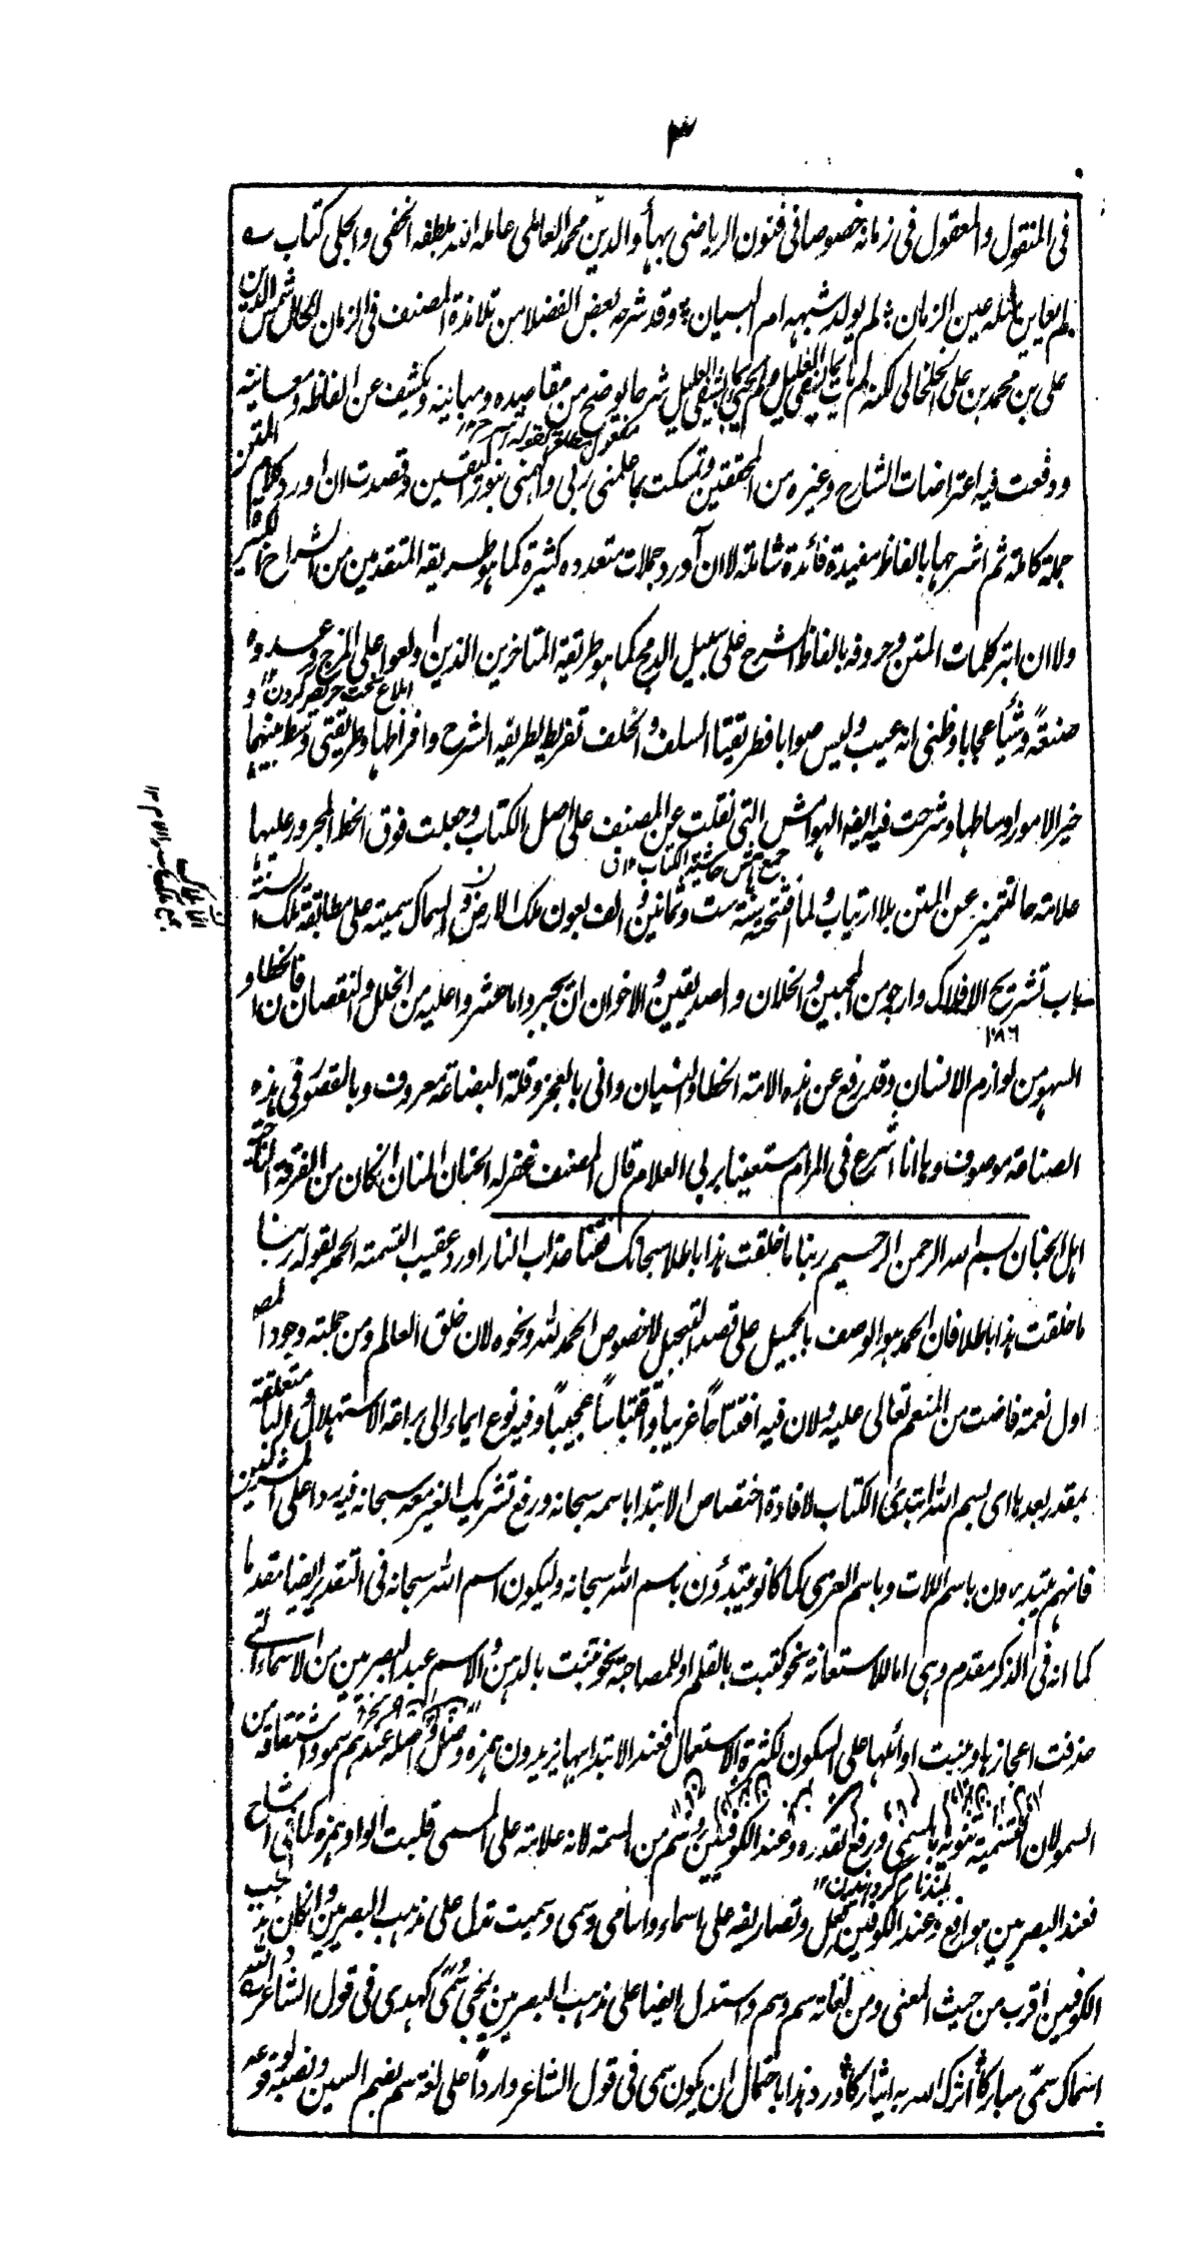 ٣
فى المنقول والمعقول فى زمانه خصوصا فى فنون الرياضى بهاء والدين محمد العاملى عامله الله بلطفه الخفى والجلى كتاب
لم يعاين مثله عين الزمان ؛ لم يولد شبهه ام البيان ؛ وقد شرحه بعض الفضلا من تلامذة المصنف فى الزمان الحال شمس الدين
على بن محمد بن على الخلخالى لكنه لم يات بما يشفى الغليل ولم يجئ بما يشفى العليل شرحا يوضح من مقاصده ومبانيه ويكشف عن الفاظه ومعانيه
ودفعت فيه اعتراضات الشارح وغيره من المحققين وتمسكت بما علمنى ربى والهمنى بنور اليقين وقصدت ان اورد كلام المتن
جملة كاملة ثم اشرحها بالفاظ مفيدة فائدة شاملة لا ان آورد جملات متعدده كثيرة كما هو طريقه المتقدمين من الشراح
ولا ان ابتر كلمات المتن وحروفه بالفاظ الشرح على سبيل الدمج كما هو طريقة المتاخرين الذين اولعوا على المزج وعدوه
صنعةً وشيأ عجابا وظنى انه عيب وليس صوابا فطريقتا السلف والخلف تفريط لطريقه الشرح وافراطها وطريقتى وسط بينهما
خير الامور اوساطها وشرحت فيه ايضا الهوامش التى نقلت عن المصنف على اصل الكتاب وجعلت فوق الخط المجرور عليها
جمع هامش حاشية الكتاب ١٢ ق
علامته ما لتتميز عن المتن بلا ارتياب ولما افتتحته سنة ست وثمانين والف بعون ملك الارض والسماك سميته على مطابقة تلك السنة
بباب تشريح الافلاك وارجو من المحبين والخلان والصديقين والاخوان ان يجبروا ما عثروا عليه من الخلل والنقصان فان الخطا و
١٠٨٦
السهو من لوازم الانسان وقد رفع عن هذه الامة الخطا والنسيان وانى بالعجز وقلة البضاعة معروف وبالقصور فى هذه
الصناعة موصوف وها انا اشرع فى المرام مستعينا بربى العلام قال المصنف غفر له الحنان المنان ان كان من الفرقة الناجية
اهل الجنان بسم الله الرحمن الرحيم ربنا ما خلقت هذا باطلا سبحانك فقنا عذاب النار اورد عقيب التسمية الحمد بقوله ربنا
ما خلقت هذا باطلا فان الحمد هو الوصف بالجميل على قصد التبجيل لا خصوص الحمد لله ونحوه لان خلق العالم ومن جملته وجود المصـ
اول نعمة فاضت من المنعم تعالى عليه ولان فيه افتتاحاً غريباً واقتباساً عجيباً وفيه نوع ايماء الى براعة الاستهلال والباء متعلقة
بمقدر بعدها اى بسم الله ابتدئ الكتاب لافادة اختصاص الابتدا باسمه سبحانه ورفع تشريك الغير معه سبحانه فيه ردا على المشركين
فانهم يبتدءون باسم اللات وباسم العزى كما كانو يبتدؤن باسم الله سبحانه وليكون اسم الله سبحانه فى التقدير ايضا مقدما
كما انه فى الذكر مقدم وهى اما للاستعانة نحو كتبت بالقلم او للمصاحبة نحو تنبت بالدهن والاسم عند البصريين من الاسماء التى
حذفت اعجازها وبنيت اوائلها على السكون لكثرة الاستعمال فعند الابتدا بها يزيدون همزه وصل واصله عندهم سمو واشتقاقه من
السمو لان التسمية تنويه بالمسمى ورفع لقدره وعند الكوفيين وسم من السمة لانه علامة على المسمى قلبت الواو همزه كما فى اشاح
فعند البصريين هو افع وعند الكوفيين اعل وتصاريفه على اسماء واسامى وسمى وسميت تدل على مذهب البصريين وان كان مذهب
الكوفيين اقرب من حيث المعنى ومن لغاته سم وسم واستدل ايضا على مذهب البصريين بمجئ سُمًى كهدى فى قول الشاعر والله
اسماك سمًى مباركاً اثرك الله به ايثاركا ورد هذا باحتمال ان يكون سمى فى قول الشاعر وارداً على لغة سم بضم السين ونصبه لوقوعه